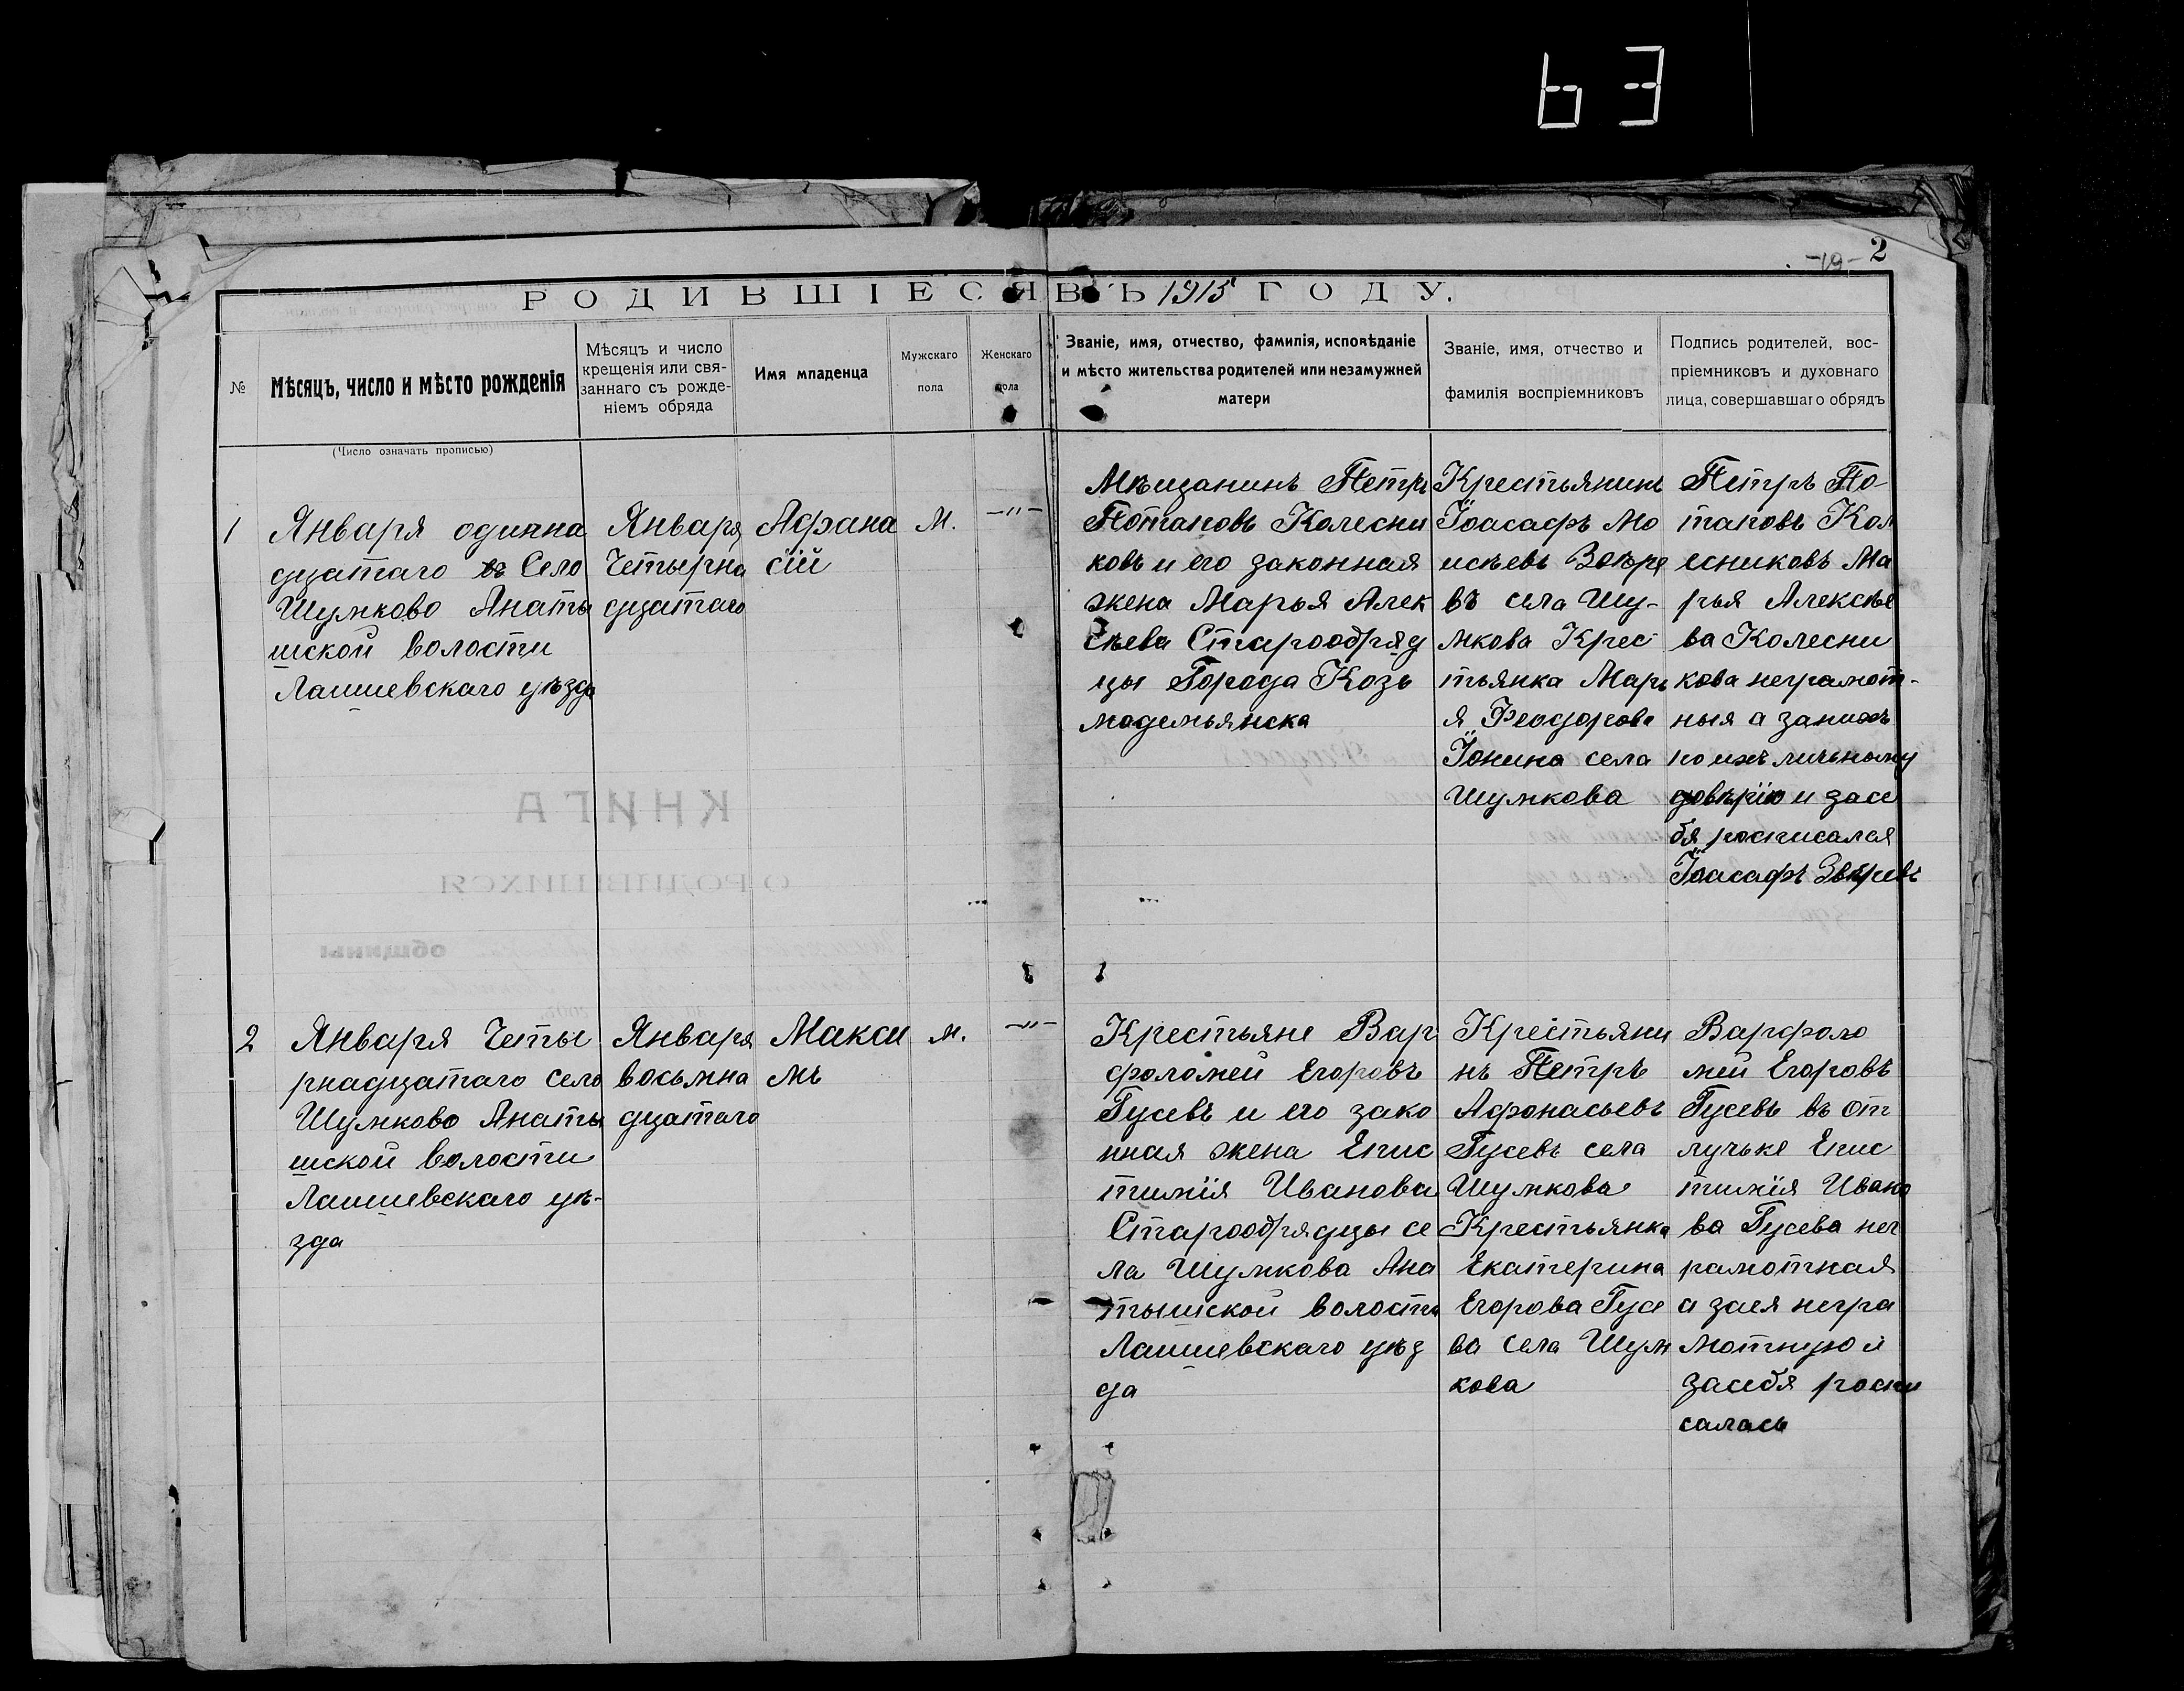 63
-19- 2
РОДИВШІЕСЯ ВЪ 1915 ГОДУ.
№
Мѣсяцъ, число и мѣсто рожденія
Мѣсяцъ и число
крещенія или свя-
заннаго съ рожде-
ніемъ обряда
Имя младенца
Мужскаго
пола
Женскаго
пола
Званіе, имя, отчество, фамилія, исповѣданіе
и мѣсто жительства родителей или незамужней
матери
Званіе, имя, отчество и
фамилія воспріемниковъ
Подпись родителей, вос-
пріемниковъ и духовнаго
лица, совершавшаго обрядъ
(Число означать прописью)
1
Января одинна
дцатаго въ Село
Шумково Анаты
шской волости
Лаишевскаго уѣзда
Января
Четырна
дцатаго
Афана
сій
М.
-"-
Мѣщанинъ Петръ
Потаповъ Колесни
ковъ и его законная
жена Марья Алек
сѣева Старообряд
цы Города Козь
модемьянска
Крестьянинъ
Іоасафъ Мо
исѣевъ Звѣре
въ села Шу-
мкова Крес
тьянка Марь
я Феодорова
Іонина села
Шумкова
Петръ По
таповъ Кол
есниковъ Ма
рья Алексѣе
ва Колесни
кова неграмот-
ныя а занихъ
по ихъ личьному
довѣрію и засе
бя росписался
Іоасафъ Звѣревъ
2
Января Четы
рнадцатаго село
Шумково Анаты
шской волости
Лаишевскаго уѣ-
зда
Января
восьмна
дцатаго
Макси
мъ
м.
-"-
Крестьяне Вар
фоломей Егоровъ
Гусевъ и его зако
нная жена Епис
тимія Иванова
Старообрядцы се
ла Шумкова Ана
тышской волости
Лаишевскаго уѣз
да
Крестьяни
нъ Петръ
Афонасьевъ
Гусевъ села
Шумкова
Крестьянка
Екатерина
Егорова Гусе
ва села Шум
кова
Варфоло
мей Егоровъ
Гусевъ въ от
лучьке Епис
тимія Ивано
ва Гусева нег
рамотная
а заея негра
мотную и
засебя роспи
салась
КНИГА
О РОДИВШИХСЯ
общины